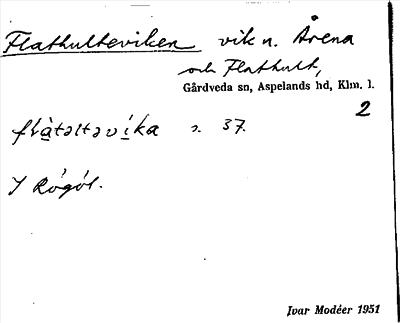 Flathulteviken vik n. Årena
och Flathult,
Gårdveda sn, Aspelands hd, Klm. l.
2
flàtəltəvíka s. 37.
Ivar Modéer 1951